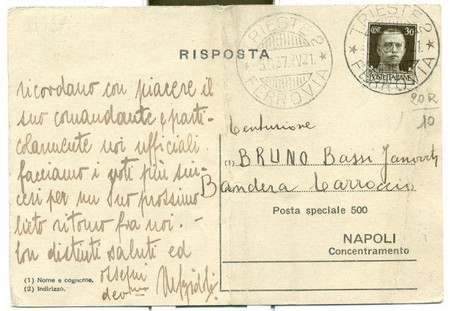 RISPOSTA
TRIESTE 2
37.XV 21.
FERROVIA
TRIESTE 2
21.
FERROVIA
30
POSTE ITALIANE
20R
10
ricordano con piacere il
suo comandante e parti-
colarmente noi ufficiali
facciamo i voti più sin-
ceri per un suo prossimo
lieto ritorno fra noi.-
Con distinti saluti ed
ossequi
dev.mo
Centurione
(1) BRUNO Bassi
Bandera Carroccio
Posta speciale 500
NAPOLI
Concentramento
(1) Nome e cognome.
(2) Indirizzo.